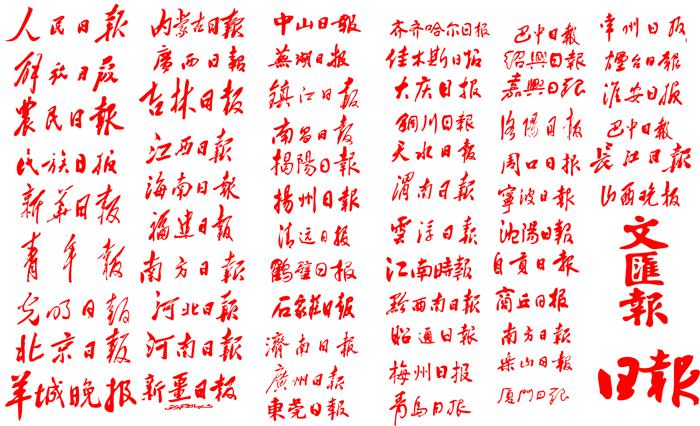 人民日報
解放日报
農民日報
民族日报
新華日報
青年報
光明日報
北京日報
羊城晚报
内蒙古日報
廣西日報
吉林日報
江西日報
海南日報
福建日報
南方日報
河北日報
河南日報
新疆日报
中山日報
蕪湖日报
鎮江日報
南昌日報
揭陽日報
揚州日報
清远日报
鶴壁日报
石家莊日報
濟南日报
廣州日報
東莞日報
齐齐哈尔日报
佳木斯日报
大庆日报
铜川日報
天水日報
渭南日報
雲浮日報
江南時報
黔西南日報
昭通日報
梅州日报
青岛日报
巴中日報
紹興日報
嘉興日报
洛陽日报
周口日报
寧波日報
沈陽日報
自貢日報
商丘日报
南方日報
樂山日报
厦门日报
常州日报
煙台日報
淮安日报
巴中日報
長江日報
山西晚报
文匯報
日報